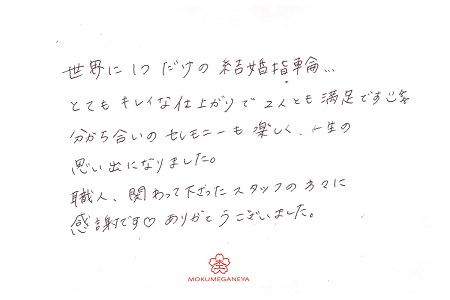 世界に1つだけの結婚指輪…
とてもキレイな仕上がりで2人とも満足です
分かち合いのセレモニーも楽しく、一生の
思い出になりました。
職人、関わって下さったスタッフの方々に
感謝です♡ ありがとうございました。
MOKUMEGANEYA